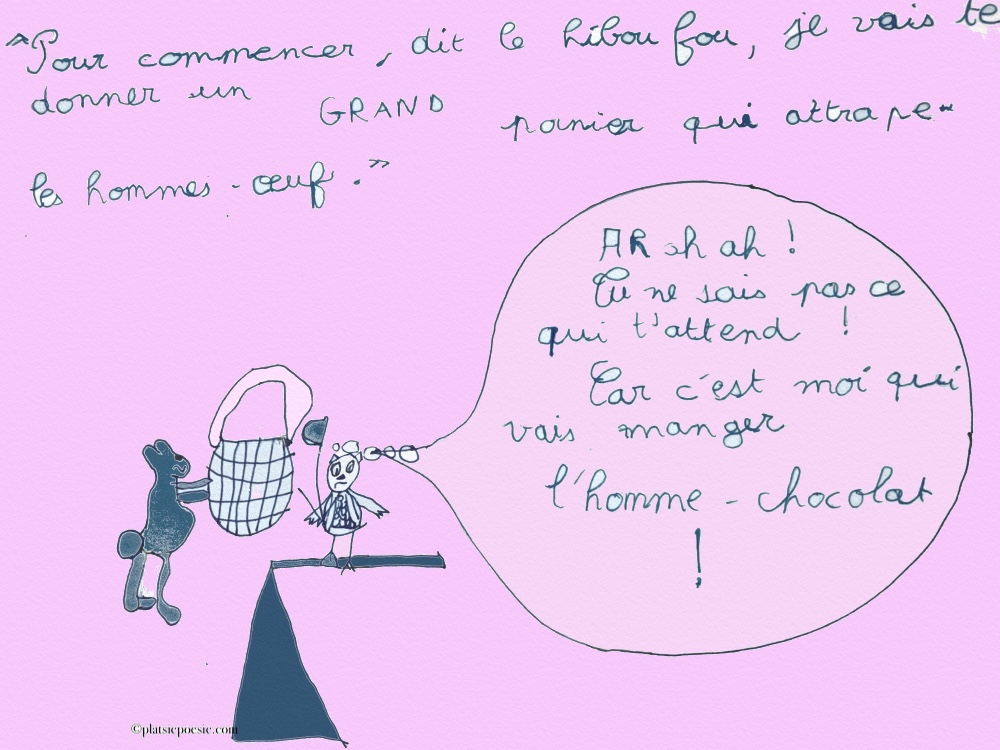 "Pour commencer, dit le hibou fou, je vais te
donner un GRAND panier qui attrape
les hommes-œuf."
AR ah ah !
Tu ne sais pas ce
qui t'attend !
Car c'est moi qui
vais manger
l'homme-chocolat
!
©platsiepoesie.com